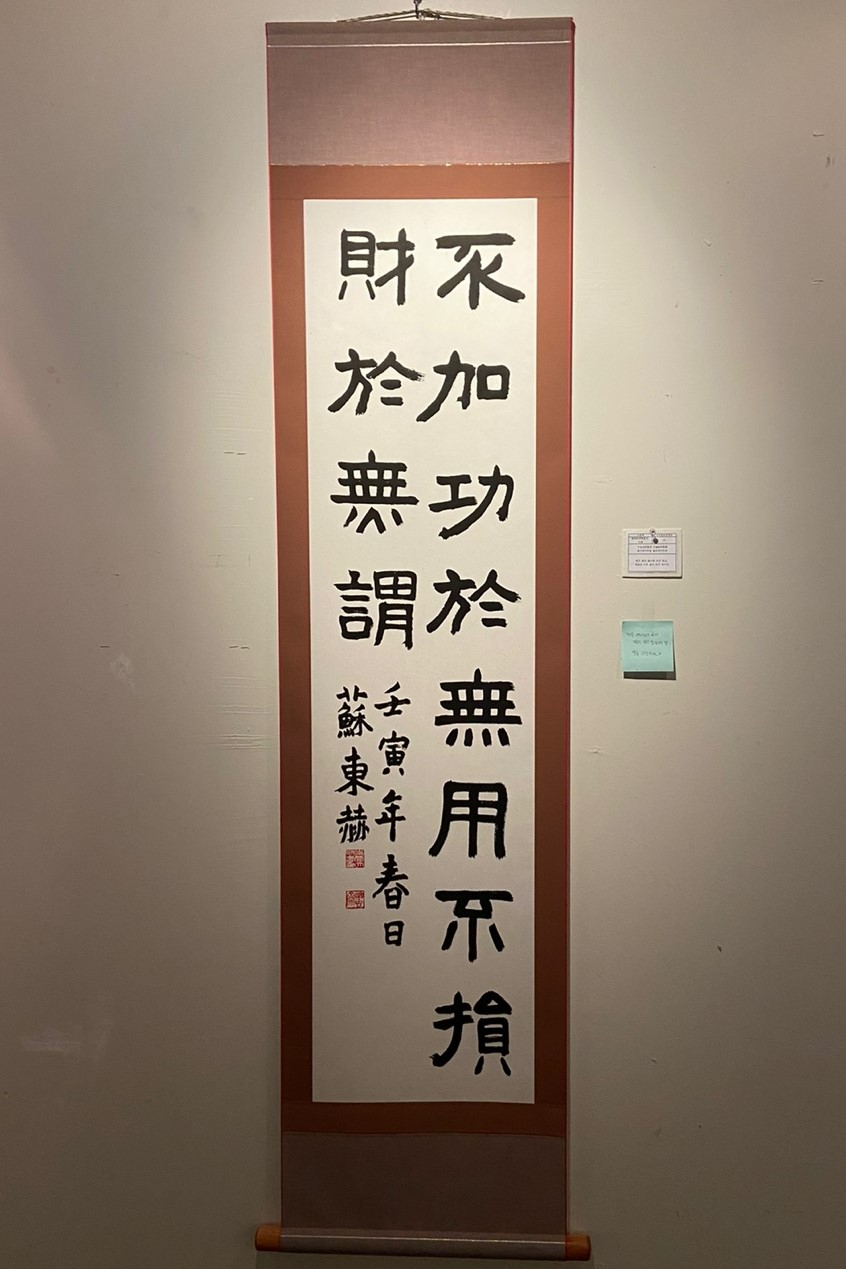 不加功於無用不損
財於無謂
壬寅年春日
蘇東赫